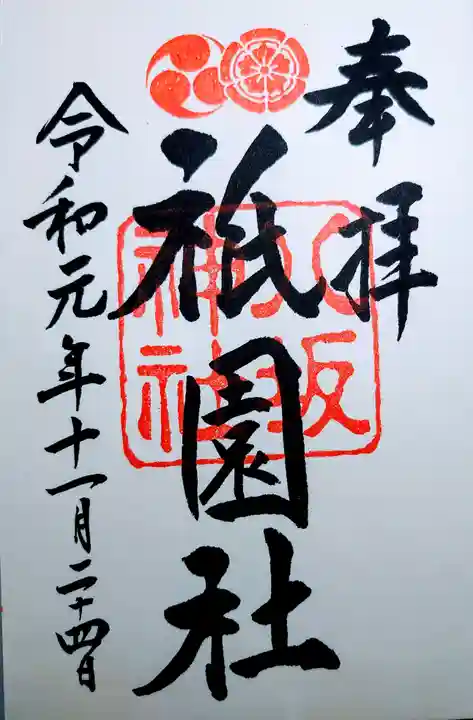 奉拝
祇園社
八坂神社
令和元年十一月二十四日